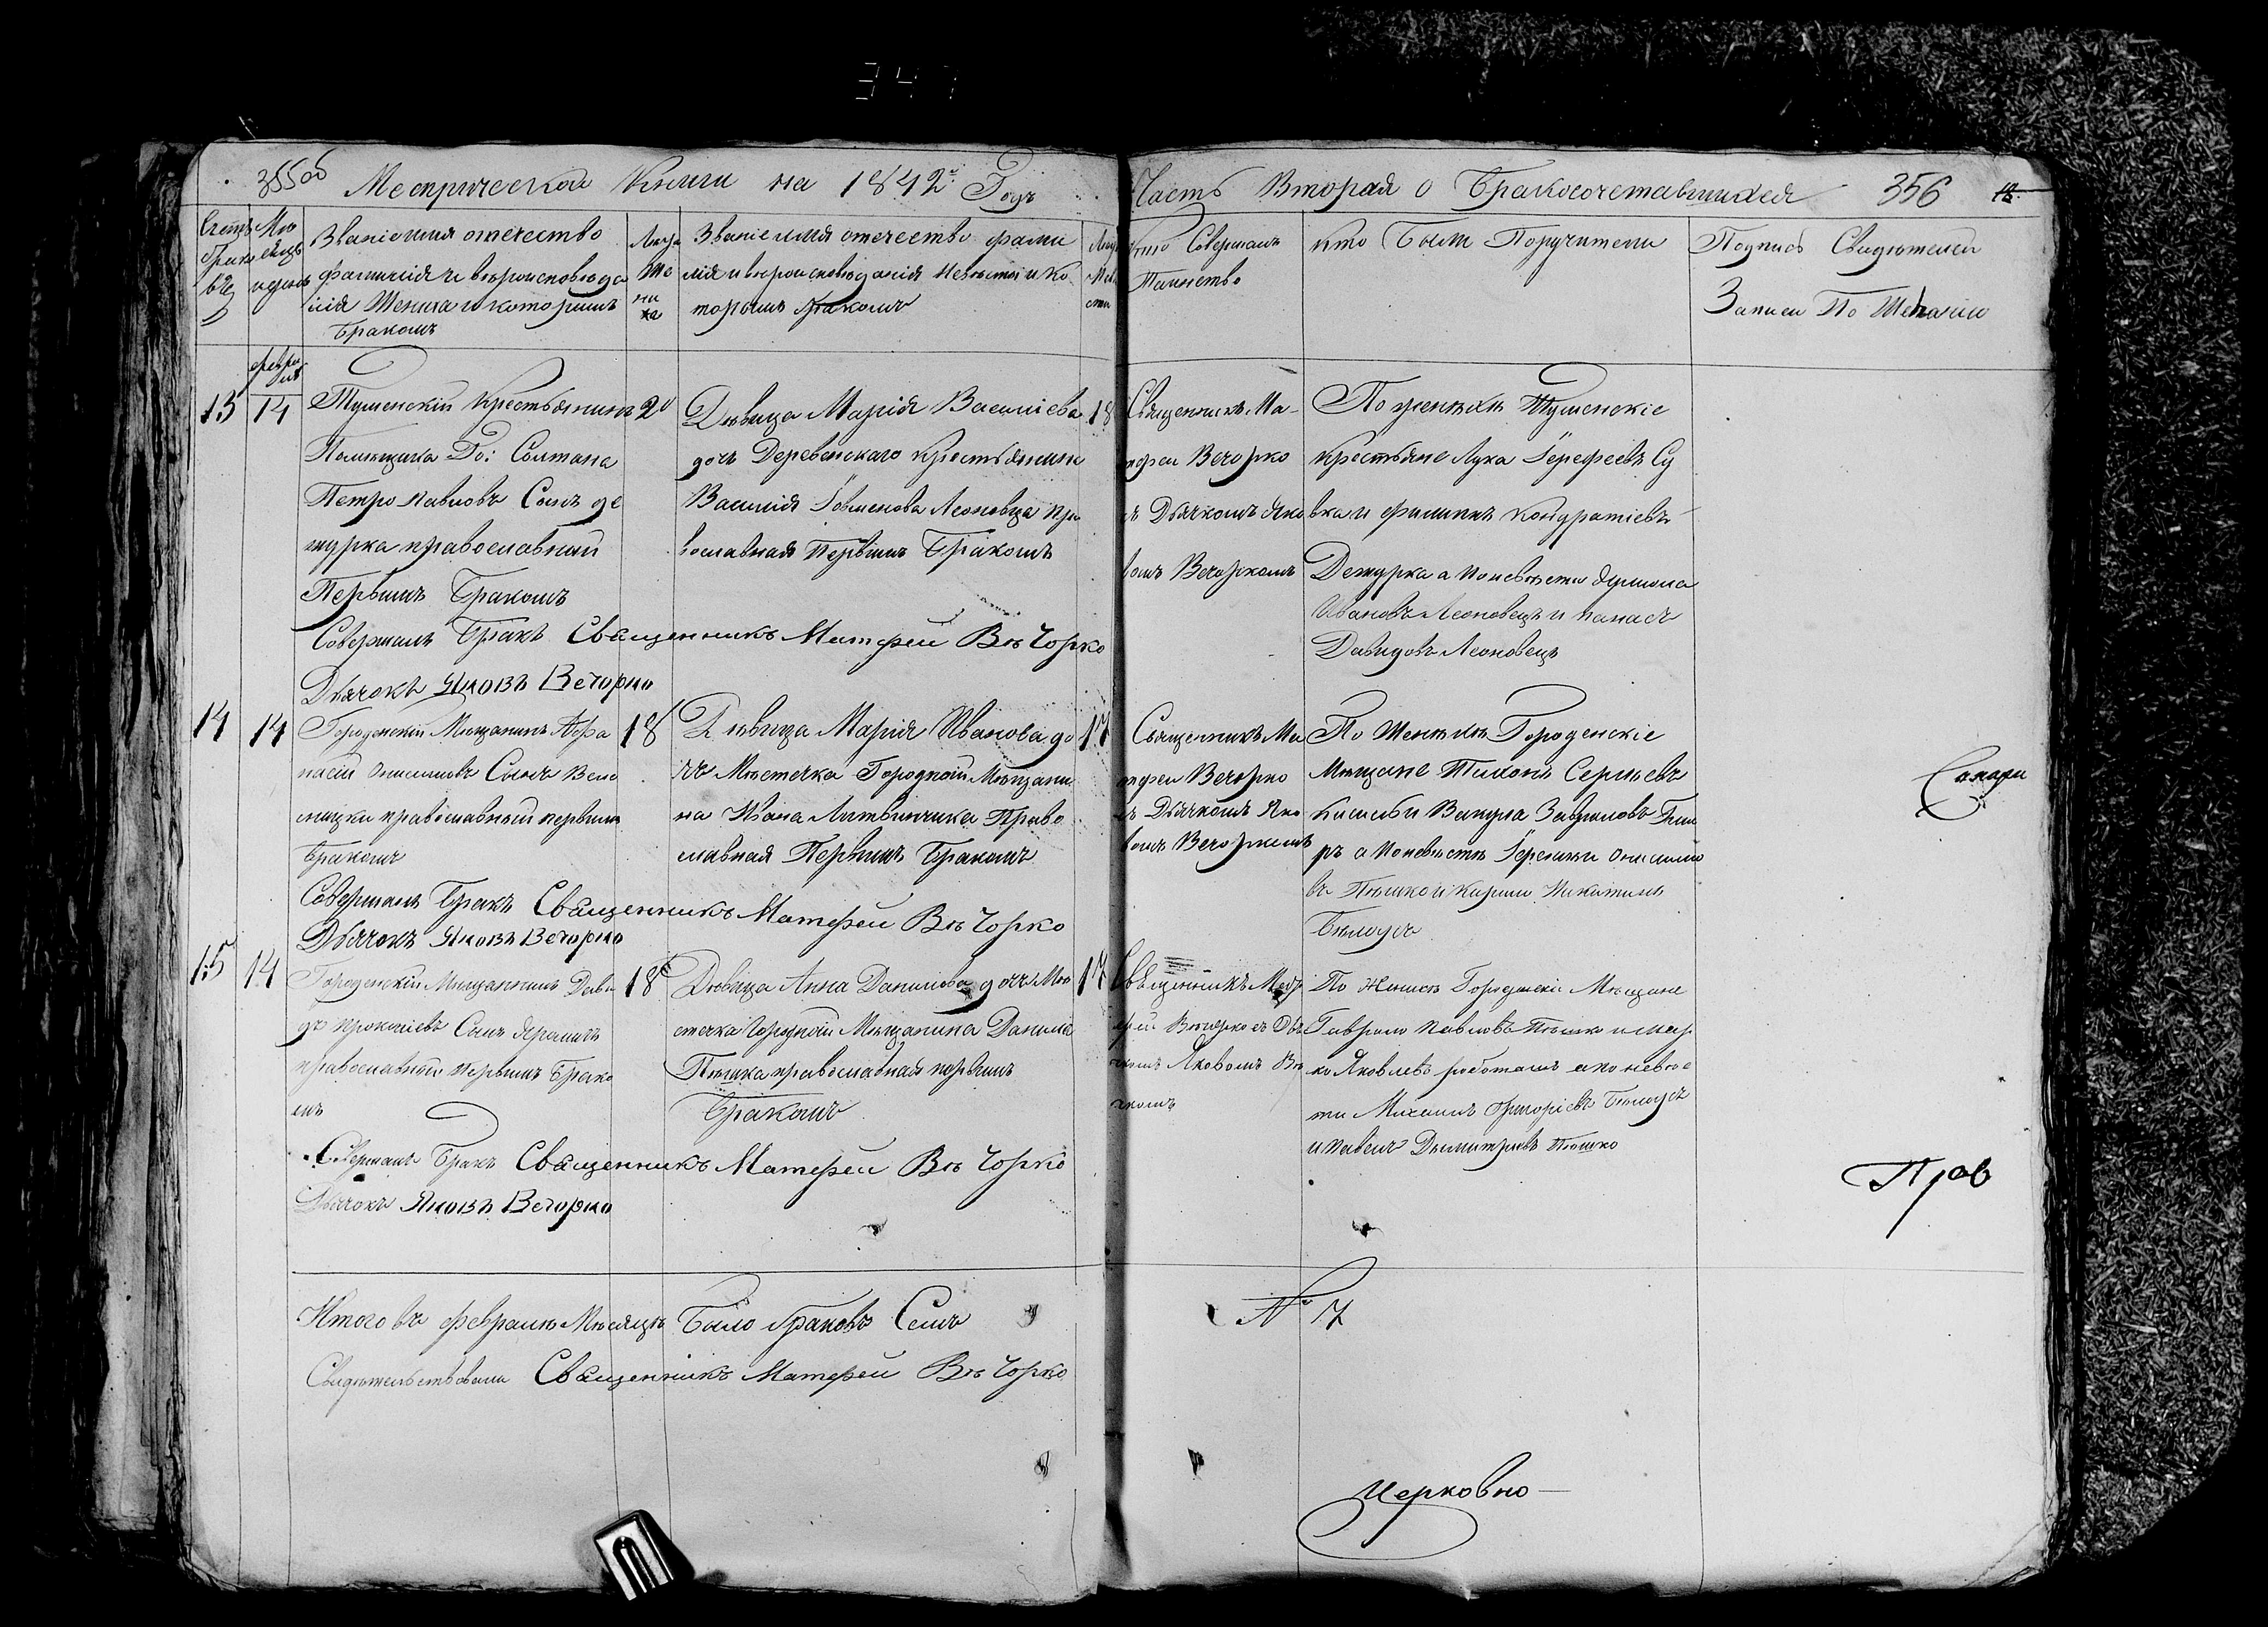 347
355об Метрической Книги на 1842й Годъ
Часть Вторая о Бракосочетавшихся 356
Званіе имя отечество
фамилія и вѣроисповѣда
нія Жениха и которымъ
бракомъ
Лѣта
Же
ни
ха
Званіе имя отечество фами
лія и вѣроисповѣданія невѣсты и ко
торымъ бракомъ
Кто Совершалъ
Таинство
Кто были Поручители
Подпись Свидѣтелей
Записи По Желанію
13 14
Туменскій Крестьянинъ 20
Помѣщика Солтана
Петро Павловъ Сынъ де
журка православный
Первымъ Бракомъ
Дѣвица Марія Василіева 18
дочь Деревенскаго Крестьянина
Василія Леоновца пра
вославная Первымъ Бракомъ
Священникъ Ма
тфей Вечорко
съ Дьячкомъ Яко
вомъ Вечоркомъ
По женихѣ Туменскіе
Крестьяне Лука Су
вка и филиппъ Кондратіевъ
Дежурка а по невѣсти
Ивановъ Леоновецъ и панасъ
Давидовъ Леоновецъ
Совершалъ Бракъ Священникъ Матфей Вѣчорко
Дьячокъ Яковъ Вечорко
14 14
Городенскій Мѣщанинъ Афа 18
насій Онисимовъ Сынъ
православный первымъ
Бракомъ
Дѣвица Марія Иванова до 17
чь Мѣстечка Городной Мѣщани
на Ивана Литвинчика Право
славная Первымъ Бракомъ
Священникъ Ма
тфей Вечорко
съ Дьячкомъ Яко
вомъ Вечоркомъ
По Женихѣ Городенскіе
Мѣщане Тихонъ Сергѣевъ
а по невѣстѣ
Никитинъ
Бѣлоусъ
Совершалъ Бракъ Священникъ Матфей Вѣчорко
Дьячокъ Яковъ Вечорко
15 14
Городенскій Мѣщанинъ Дави 18
дъ Прокопіевъ Сынъ
православный Первымъ Брако
мъ
Дѣвица Анна Данилова дочь Мѣ 17
стечка Городной Мѣщанина Данила
Пѣшка православная первымъ
Бракомъ
Священникъ Мат
фей Вѣчорко съ Дья
чкомъ Яковомъ Вѣ
чкомъ
По Женихѣ Городенскіе Мѣщане
Гаврило Павловъ Пѣшко и мар
ко Яковлевъ а по невѣс
ти Михаилъ Григоріевъ Бѣлоусъ
и Павелъ Дмитріевъ Пѣшко
Совершалъ Бракъ Священникъ Матфей Вѣчорко
Дьячокъ Яковъ Вечорко
Прав
Итого въ февралѣ Мѣсяцѣ Было браковъ Семь
№ 7
Свидѣтельствовалъ Священникъ Матфей Вѣчорко
Церковно